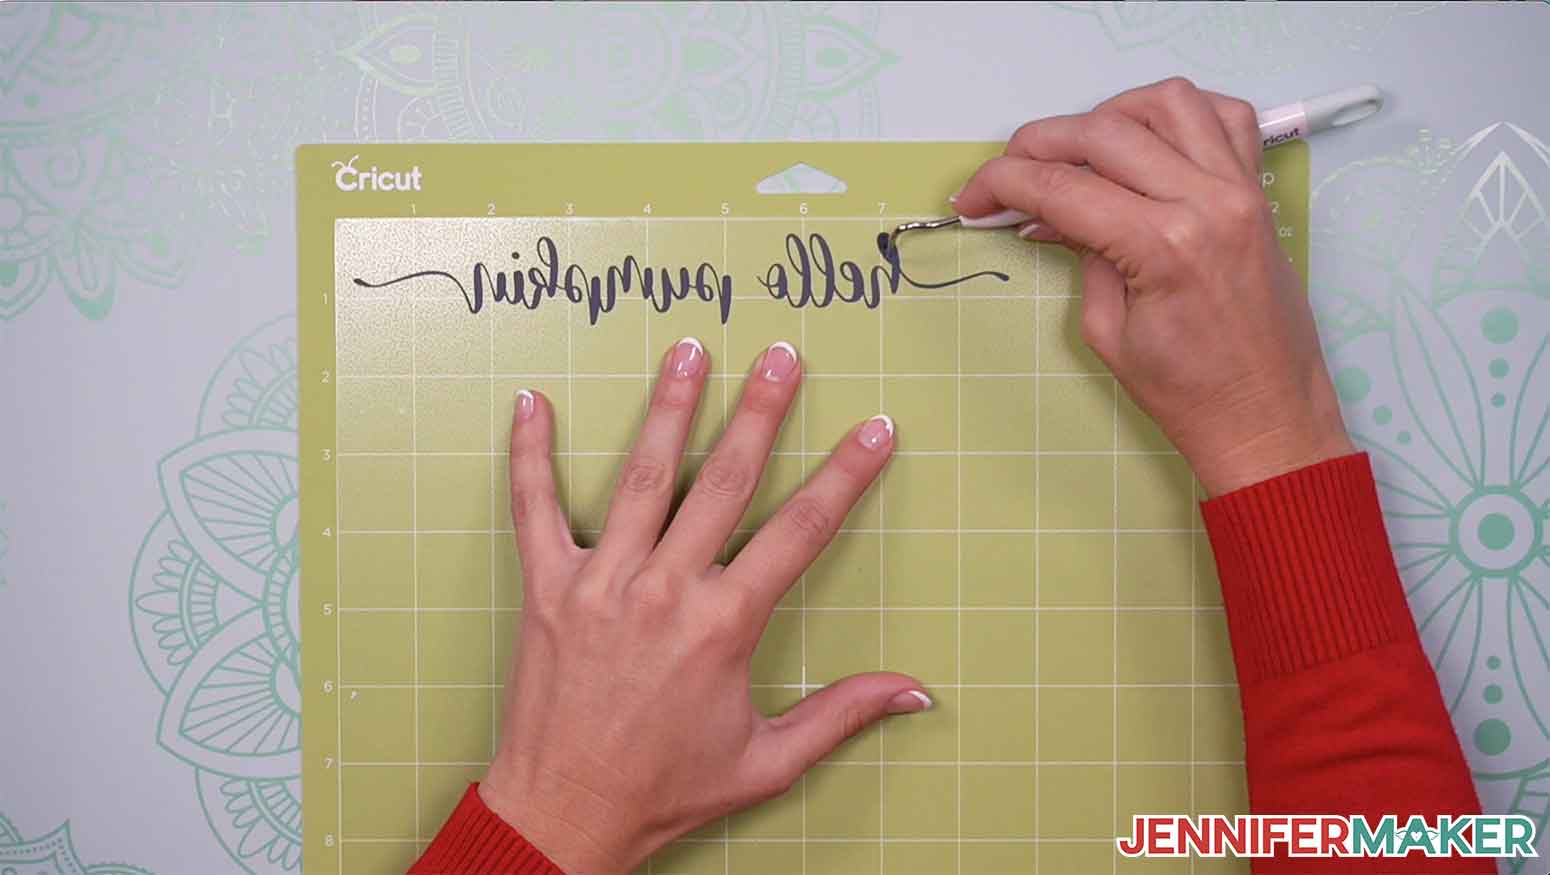 Cricut
1 2 3 4 5 6 7
hello pumpkin
1
2
3
4
5
6
7
8
ricut
JENNIFERMAKER